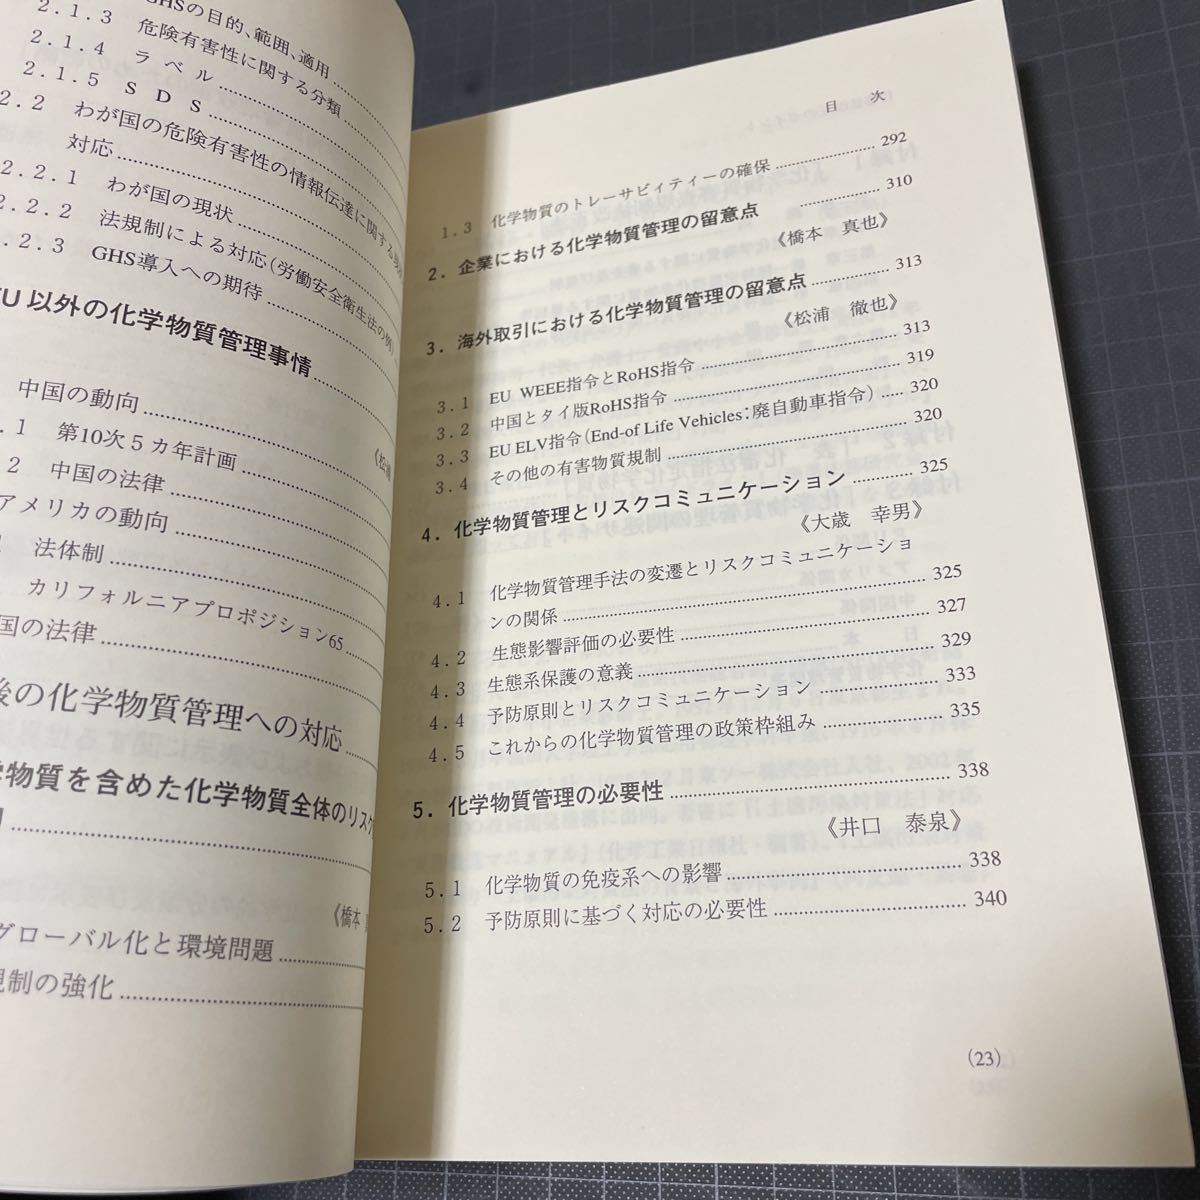 GHSの目的、範囲、適用
2.1.3 危険有害性に関する分類
2.1.4 ラベル
2.1.5 SDS
2.2 わが国の危険有害性の情報伝達に関する
対応
2.2.1 わが国の現状
2.2.2 法規制による対応(労働安全衛生法の例)
2.3 GHS導入への期待
EU以外の化学物質管理事情
《松浦
中国の動向
.1 第10次5カ年計画
2 中国の法律
アメリカの動向
法体制
カリフォルニアプロポジション65
国の法律
後の化学物質管理への対応
学物質を含めた化学物質全体のリスク
《橋本
グローバル化と環境問題
規制の強化
目次
1.3 化学物質のトレーサビィティーの確保 292
2. 企業における化学物質管理の留意点 310
《橋本 真也》
3. 海外取引における化学物質管理の留意点 313
《松浦 徹也》
3.1 EU WEEE指令とRoHS指令 313
3.2 中国とタイ版RoHS指令 319
3.3 EU ELV指令(End-of Life Vehicles:廃自動車指令) 320
3.4 その他の有害物質規制 320
4. 化学物質管理とリスクコミュニケーション 325
《大歳 幸男》
4.1 化学物質管理手法の変遷とリスクコミュニケーショ
ンの関係 325
4.2 生態影響評価の必要性 327
4.3 生態系保護の意義 329
4.4 予防原則とリスクコミュニケーション 333
4.5 これからの化学物質管理の政策枠組み 335
5. 化学物質管理の必要性 338
《井口 泰泉》
5.1 化学物質の免疫系への影響 338
5.2 予防原則に基づく対応の必要性 340
(23)